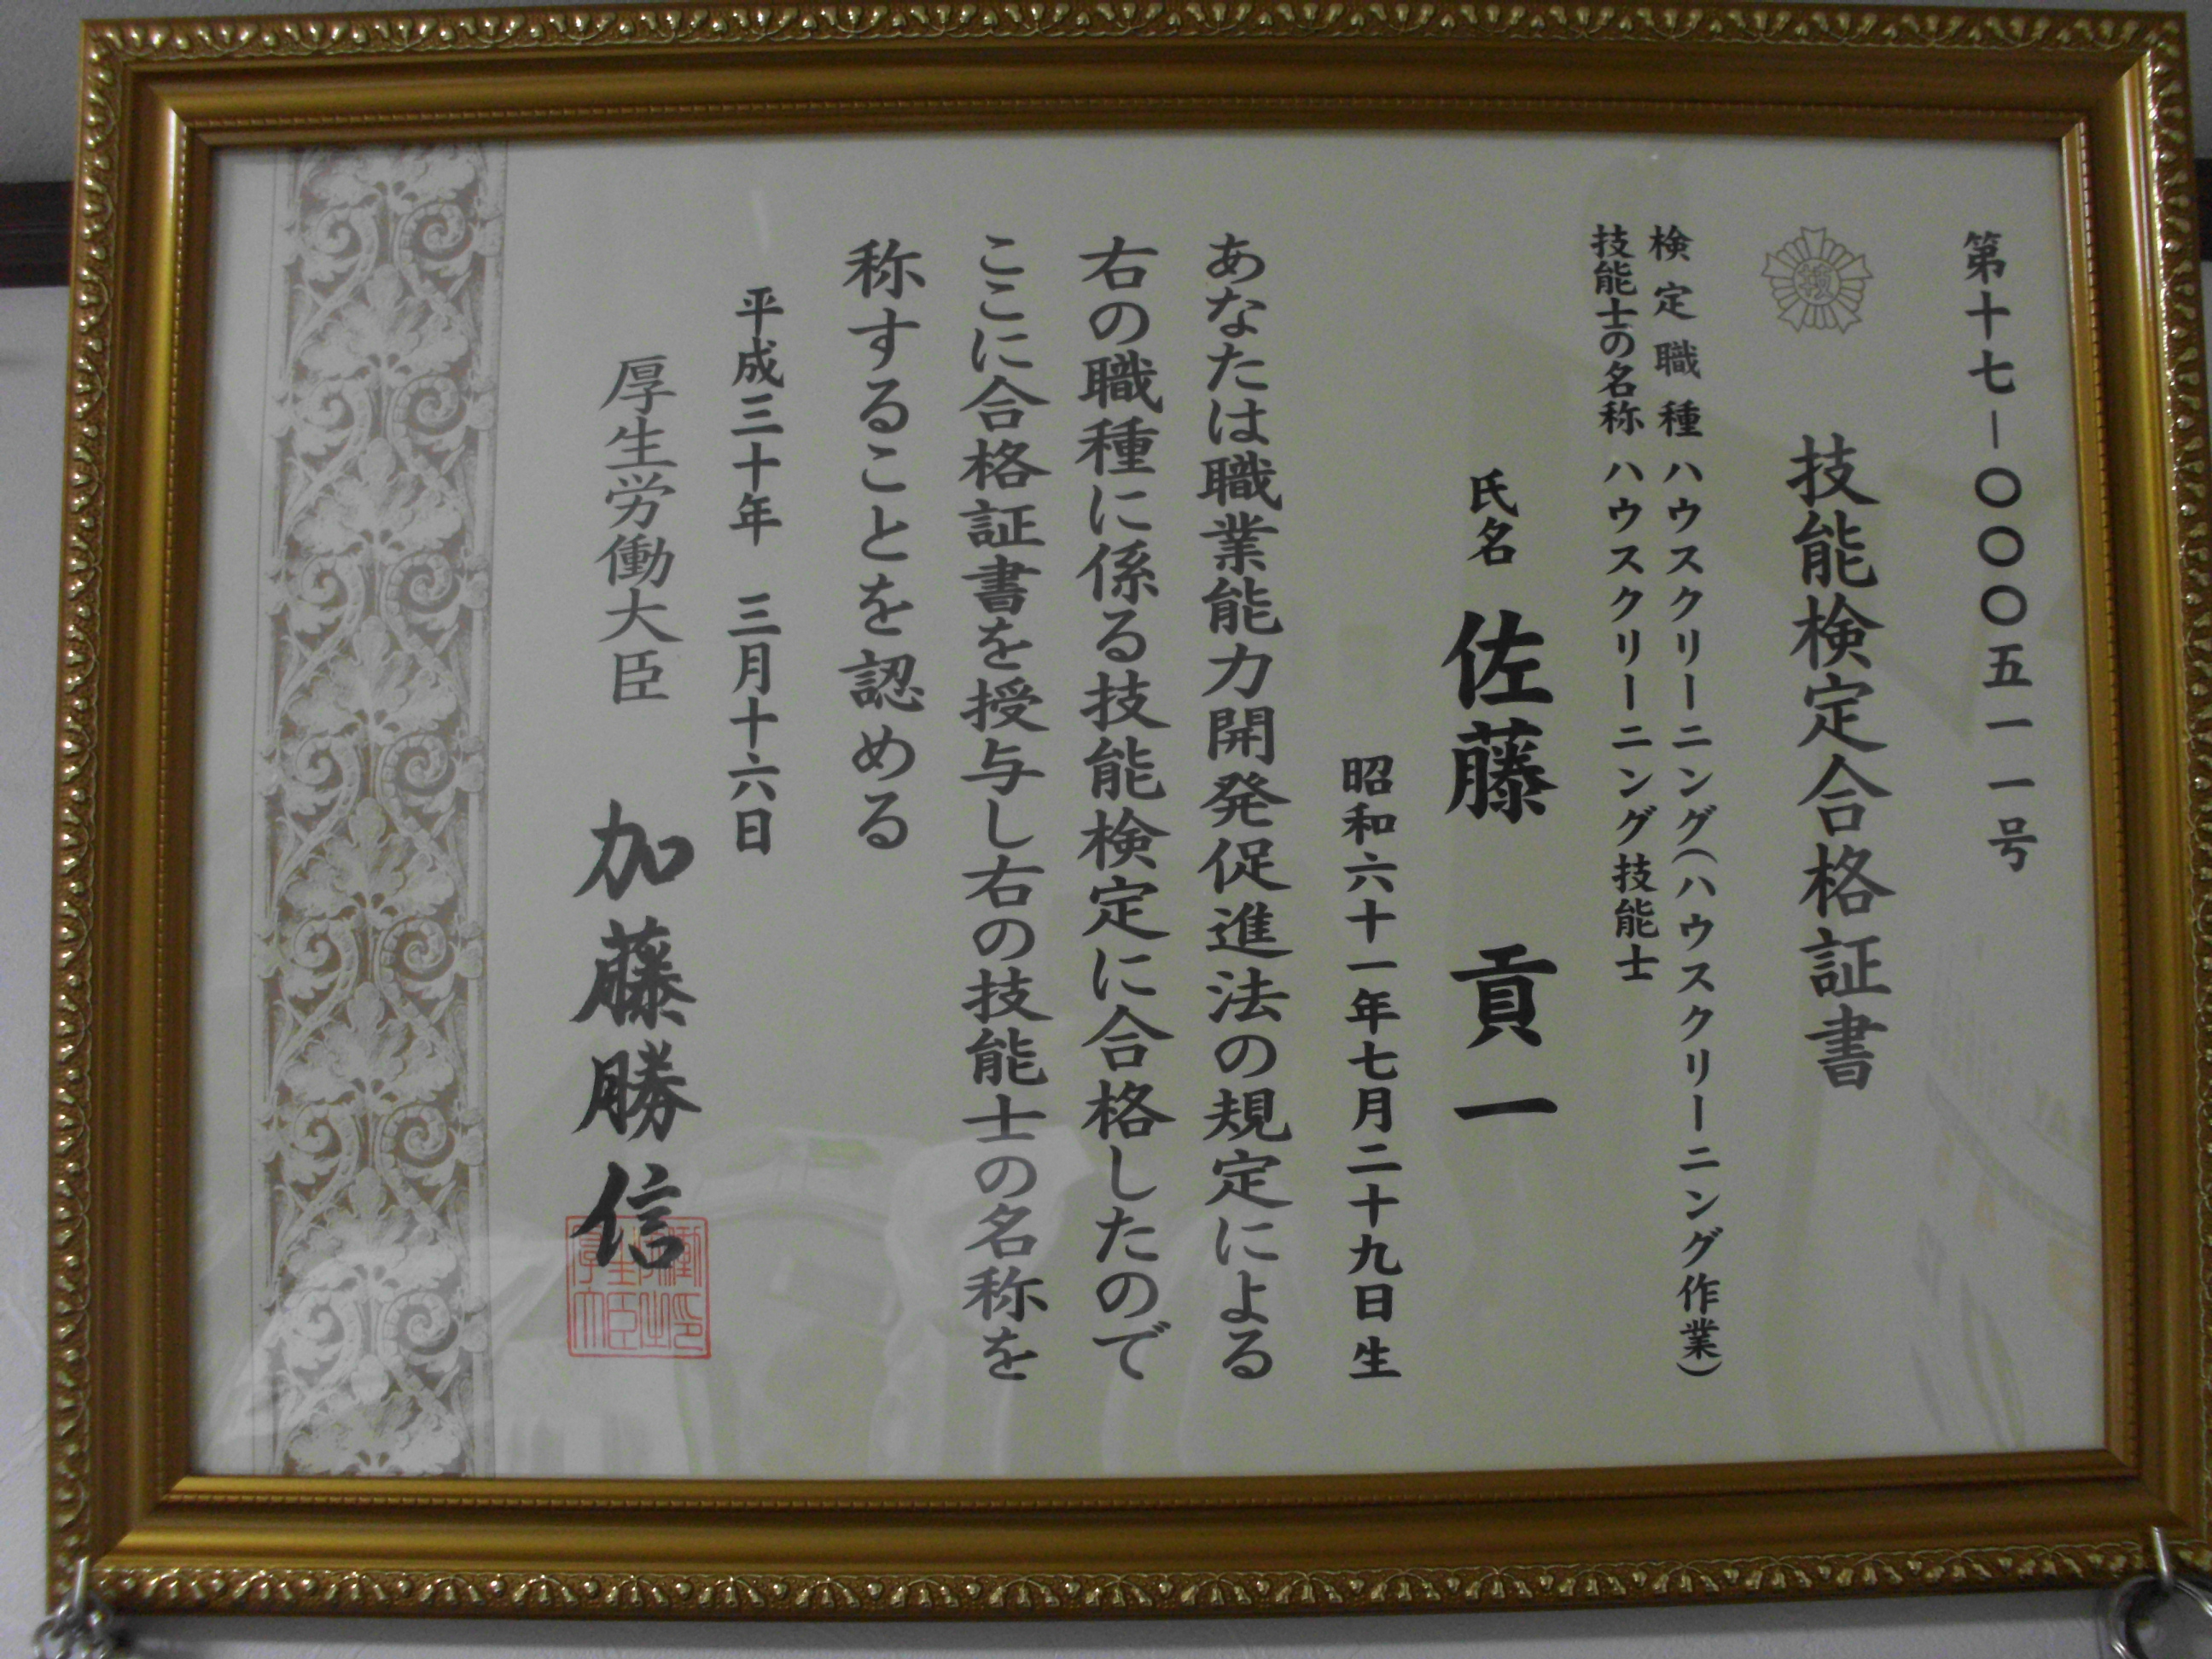 第十七－〇〇〇五一一号
技能検定合格証書
検定職種 ハウスクリーニング(ハウスクリーニング作業)
技能士の名称 ハウスクリーニング技能士
氏名 佐藤 貢一
昭和六十一年七月二十九日生
あなたは職業能力開発促進法の規定による
右の職種に係る技能検定に合格したので
ここに合格証書を授与し右の技能士の名称を
称することを認める
平成三十年 三月十六日
厚生労働大臣 加藤勝信